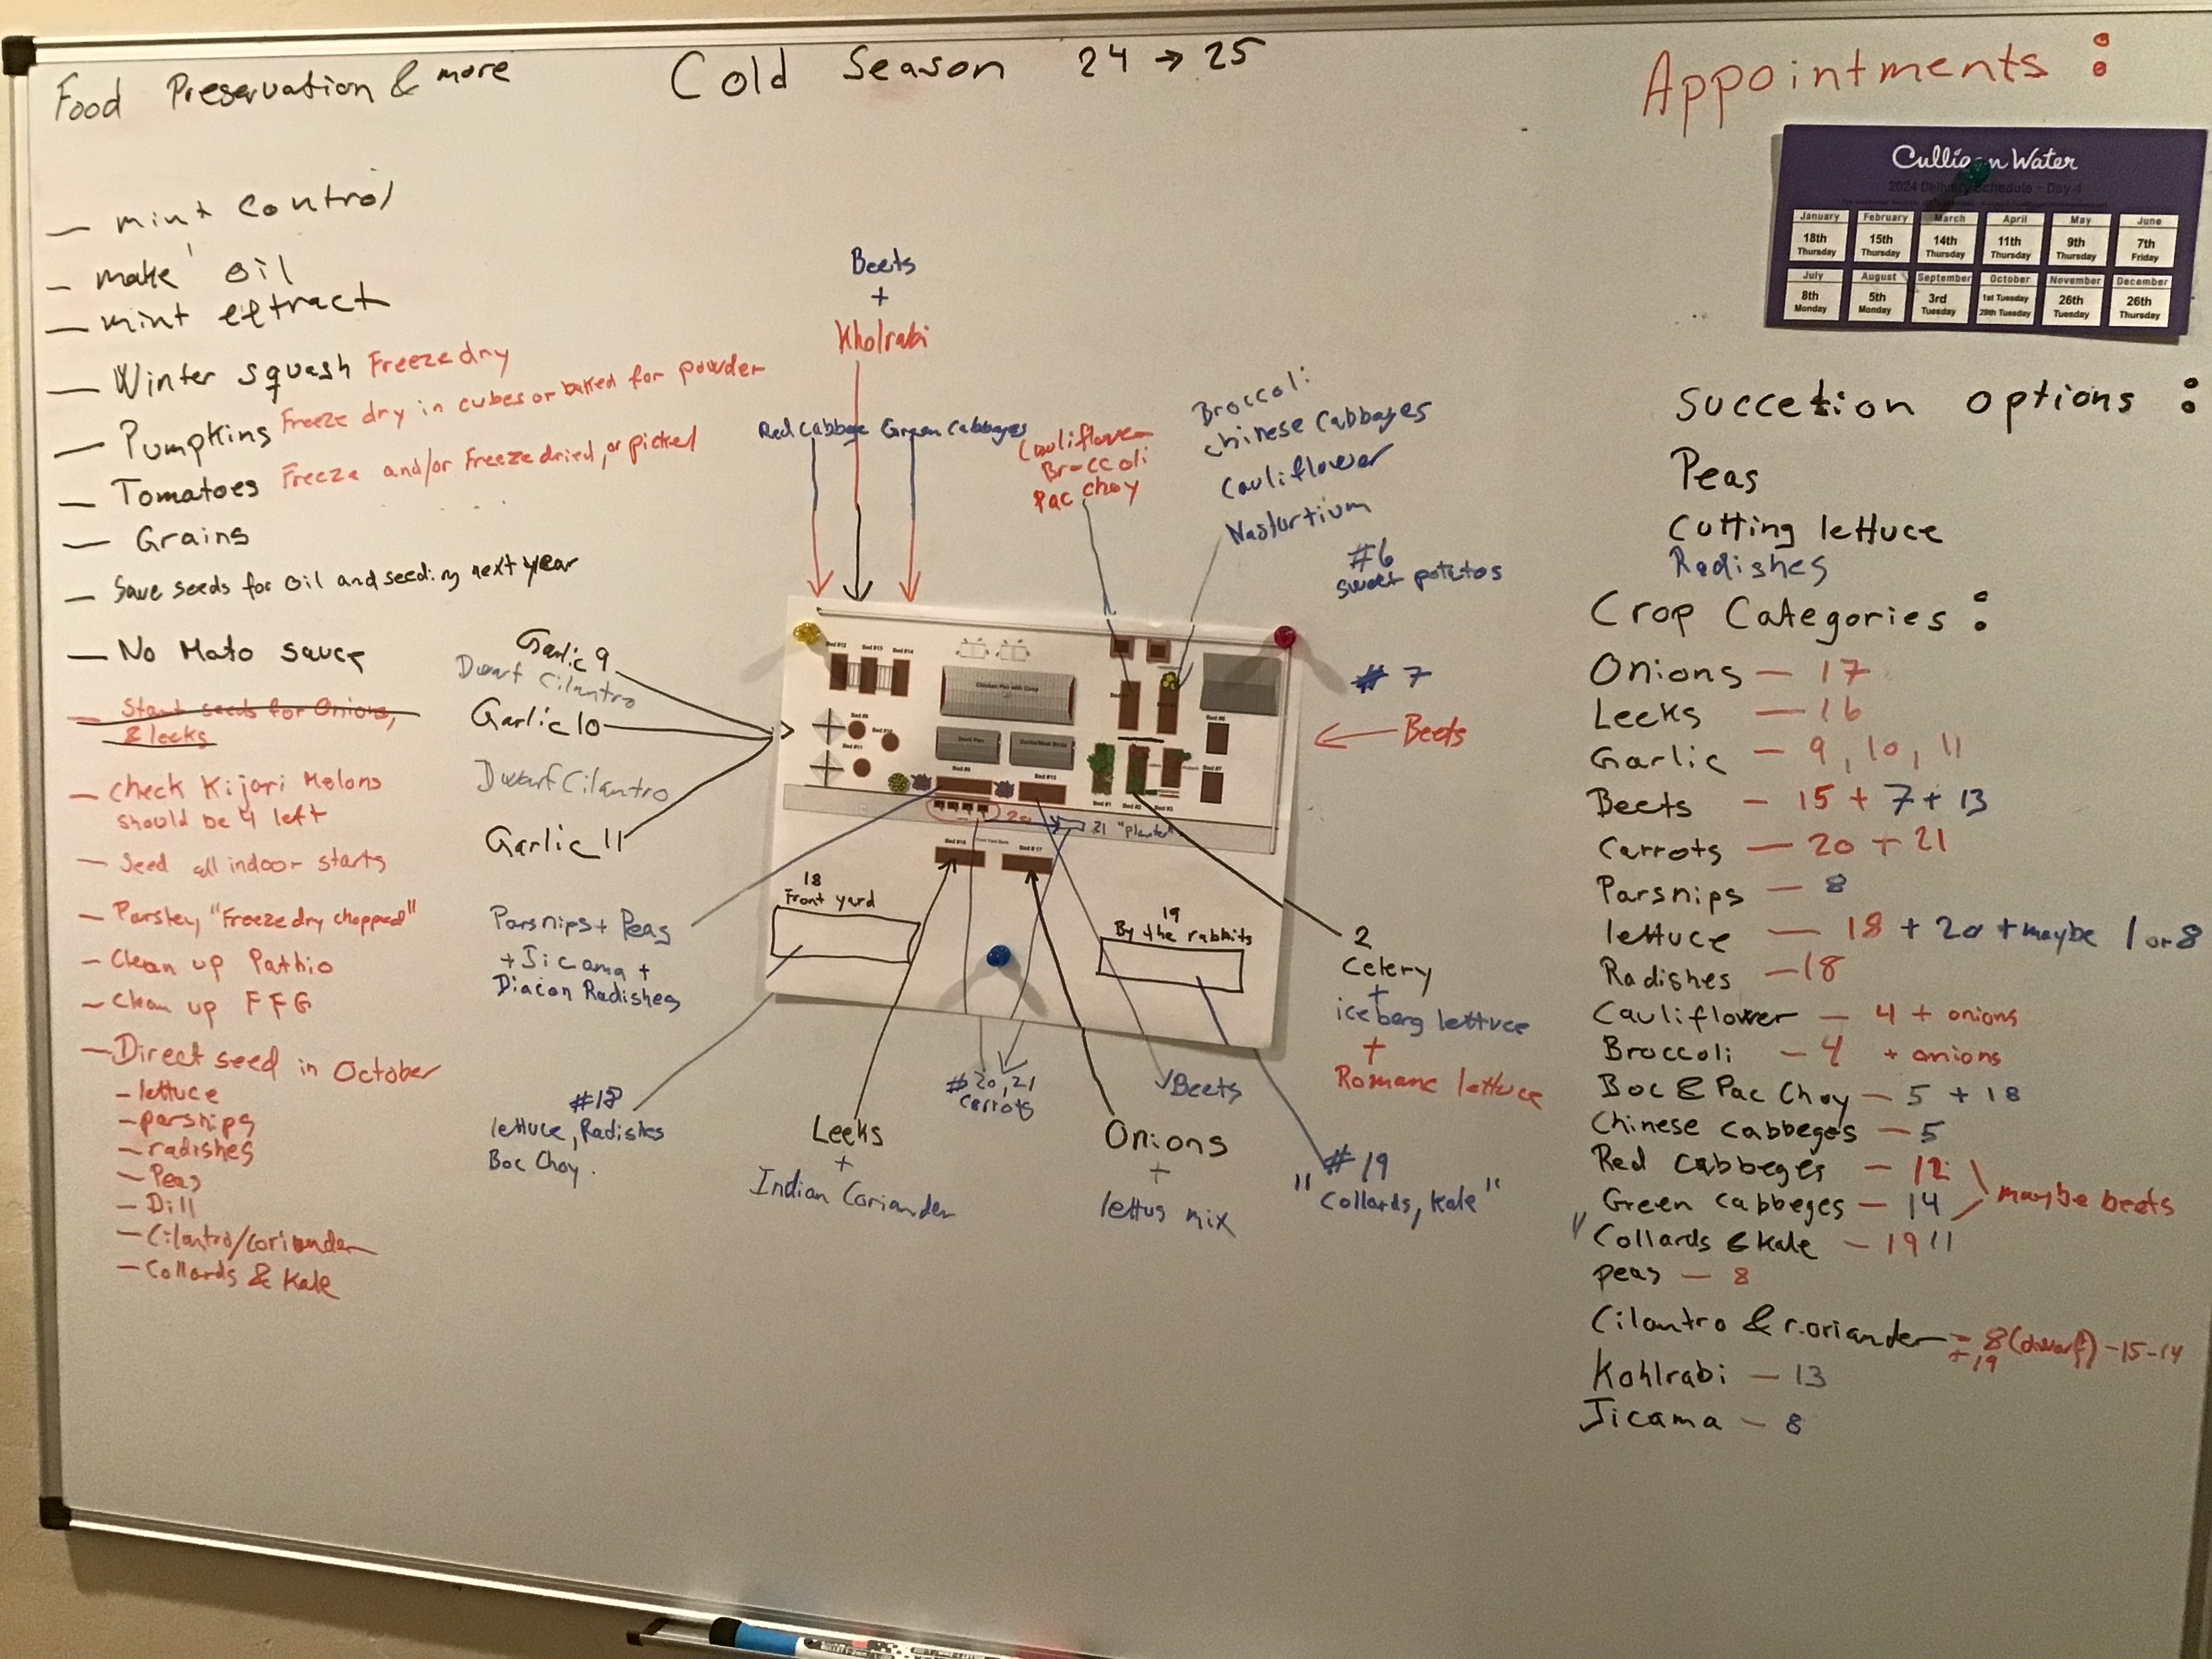 Food Preservation & more
Cold Season 24 → 25
Appointments :
— mint control
— make oil
— mint eftract
— Winter squash Freeze dry
— Pumpkins Freeze dry in cubes or baked for powder
— Tomatoes Freeze and/or Freeze dried, or picked
— Grains
— Save seeds for oil and seeding next year
— No Mato sauce
— Start seeds for Onions,
& leeks
— check Kijari Melons
should be 4 left
— Seed all indoor starts
— Parsley, "Freeze dry chopped"
— Clean up Pathio
— Clean up FFG
— Direct seed in October
— lettuce
— parsnips
— radishes
— Peas
— Dill
— Cilantro/coriander
— Collards & Kale
Beets
+
Kholrabi
Red Cabbage Green Cabbages
Cauliflower
Broccoli
Pac choy
Broccoli
chinese cabbages
Cauliflower
Nasturtium
#6
sweet potatos
# 7
Beets
Garlic 9
Dwarf Cilantro
Garlic 10
Dwarf Cilantro
Garlic 11
Bed #12
Bed #13
Bed #14
Chicken Pen with Coop
Duck Pen
Bed #15
20
21 "Planter"
Bed #16
Bed #17
18
Front yard
19
By the rabbits
Parsnips + Peas
+ Jicama +
Diacon Radishes
#18
lettuce, Radishes
Boc Choy.
Leeks
+
Indian Coriander
# 20, 21
carrots
Beets
Onions
+
lettus mix
# 19
"Collards, Kale"
2
Celery
+
iceberg lettuce
+
Romane lettuce
Culligan Water
2024 Delivery Schedule - Day 4
January February March April May June
18th 15th 14th 11th 9th 7th
Thursday Thursday Thursday Thursday Thursday Friday
July August September October November December
8th 5th 3rd 1st Tuesday 26th 26th
Monday Monday Tuesday 29th Tuesday Tuesday Thursday
Succetion options :
Peas
Cutting lettuce
Radishes
Crop Categories :
Onions — 17
Leeks — 16
Garlic — 9, 10, 11
Beets — 15 + 7 + 13
Carrots — 20 + 21
Parsnips — 8
lettuce — 18 + 20 + maybe 1 or 8
Radishes — 18
Cauliflower — 4 + onions
Broccoli — 4 + onions
Boc & Pac Choy — 5 + 18
Chinese cabbeges — 5
Red Cabbeges — 12
Green cabbeges — 14 maybe beets
"Collards & Kale — 19"
peas — 8
Cilantro & coriander = 8 (dwarf) - 15 - 14
+ 19
Kohlrabi — 13
Jicama — 8